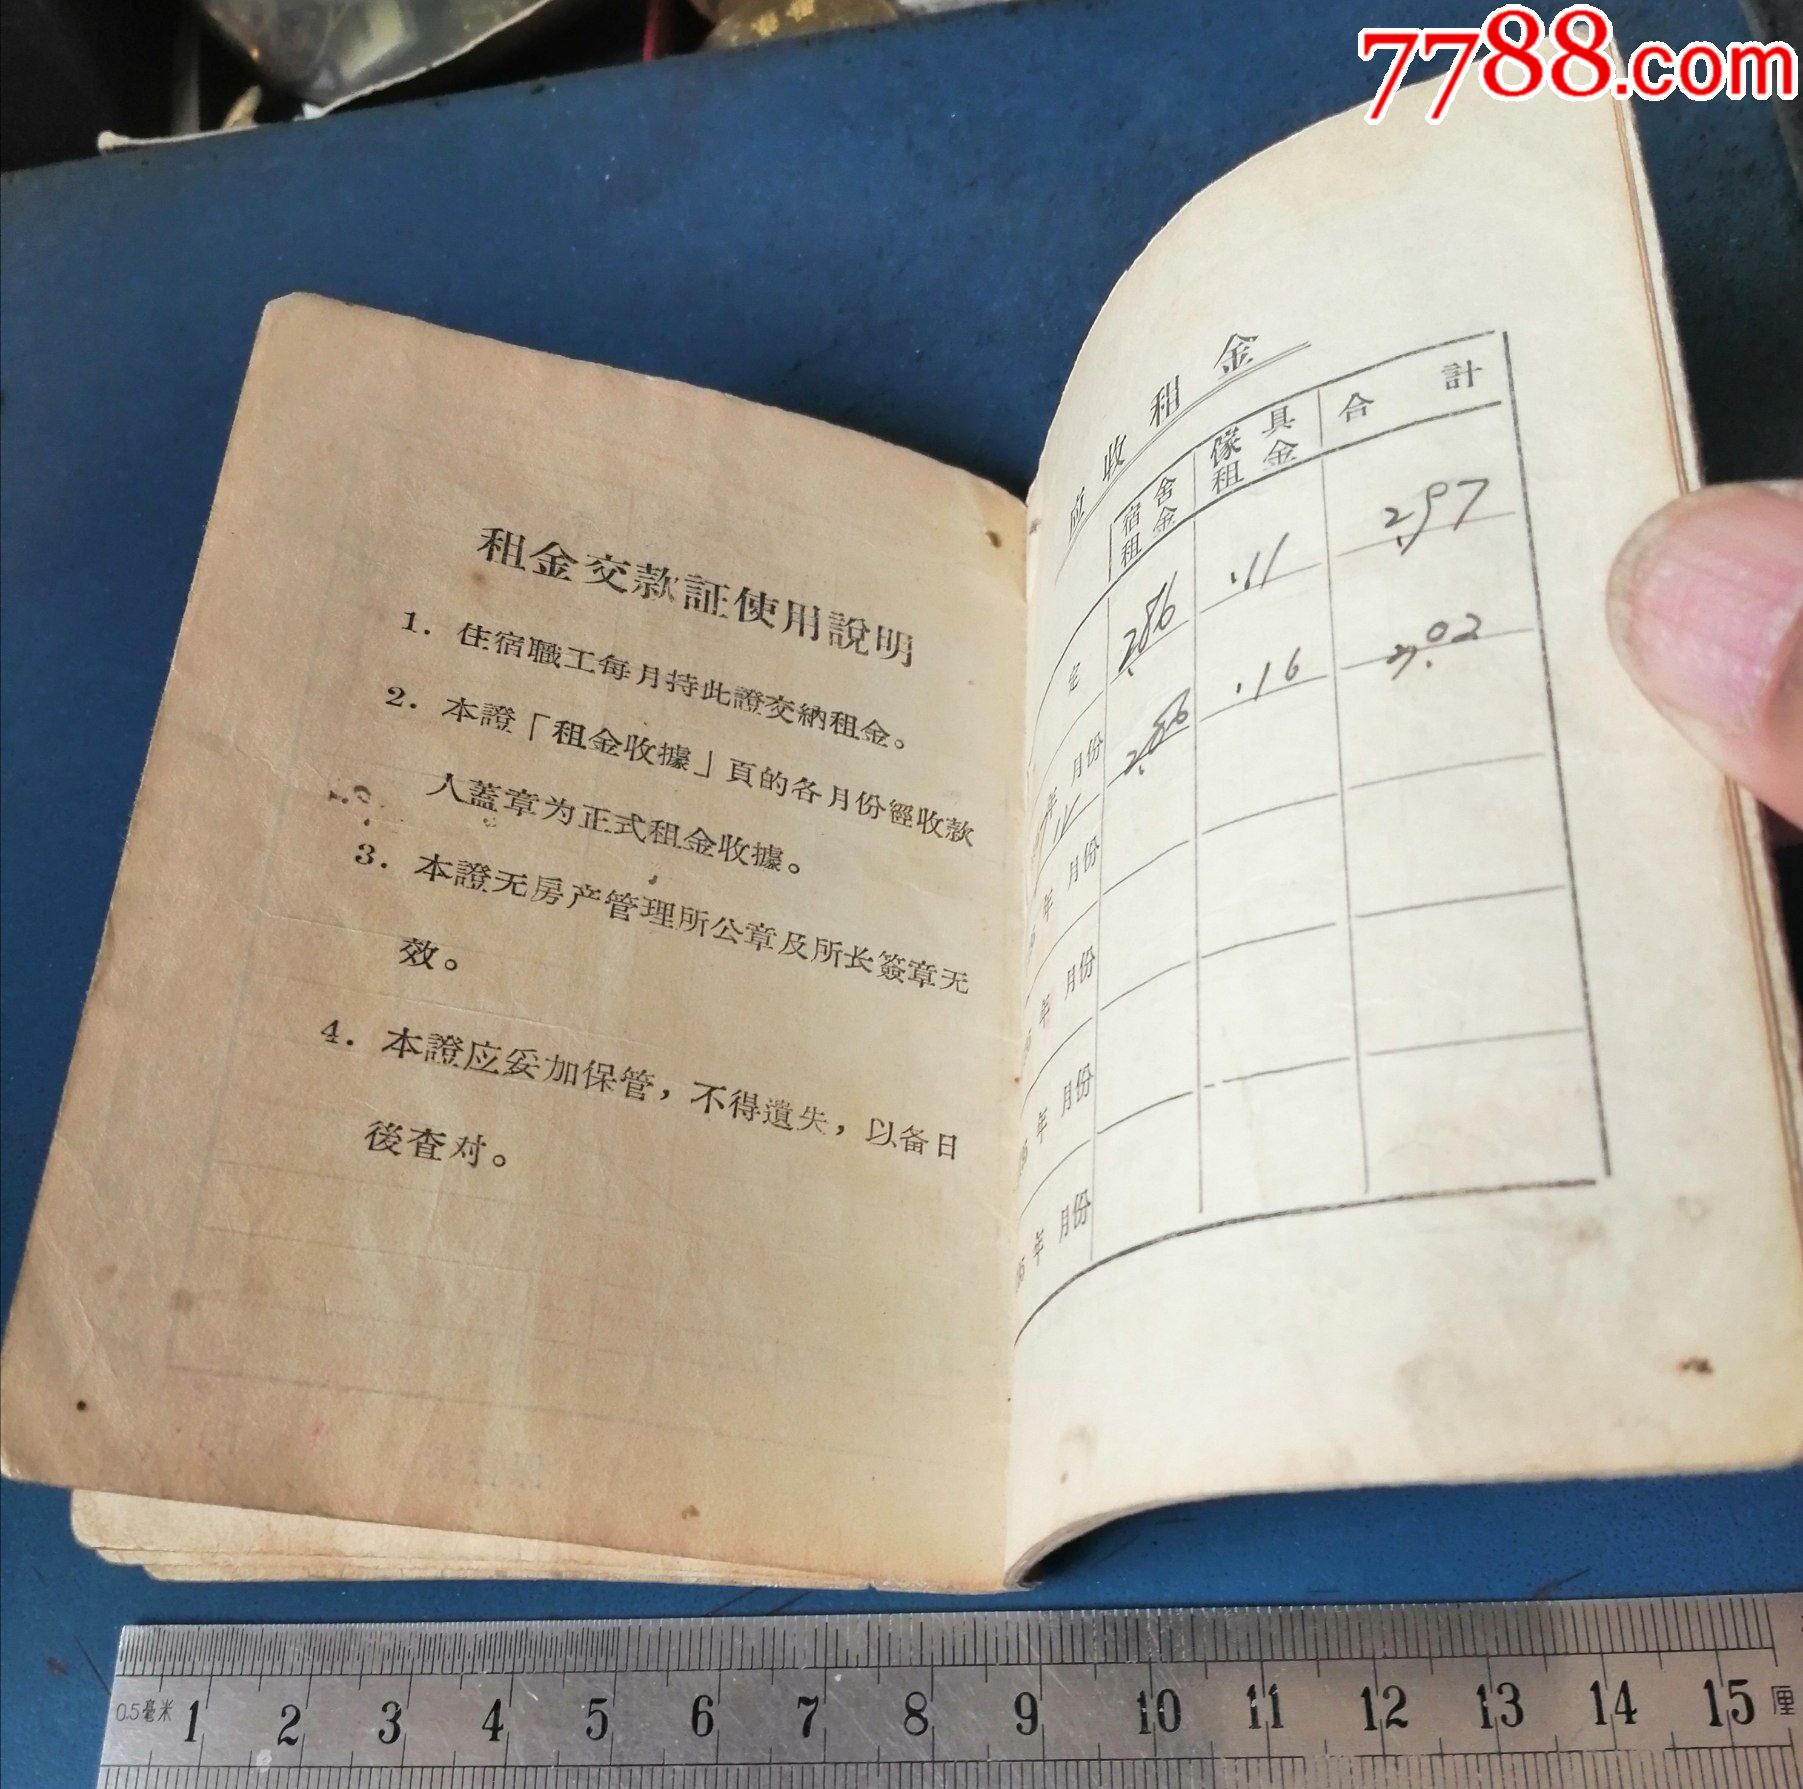 7788.com
租金交款証使用說明
1. 住宿職工每月持此證交納租金。
2. 本證「租金收據」頁的各月份經收款
人蓋章为正式租金收據。
3. 本證无房产管理所公章及所长簽章无
效。
4. 本證应妥加保管，不得遺失，以备日
後查对。
应收租金
宿舍租金 傢具租金 合計
2.86 .11 2.97
月份 2.86 .16 3.02
年 月份
年 月份
年 月份
年 月份
年 月份
0.5毫米 1 2 3 4 5 6 7 8 9 10 11 12 13 14 15 厘